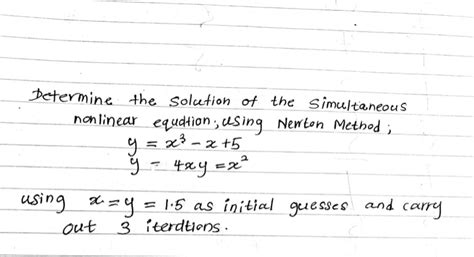 Determine the solution of the simultaneous
nonlinear equation, using Newton Method;
y = x³ - x + 5
y - 4xy = x²
using x = y = 1.5 as initial guesses and carry
out 3 iterations.